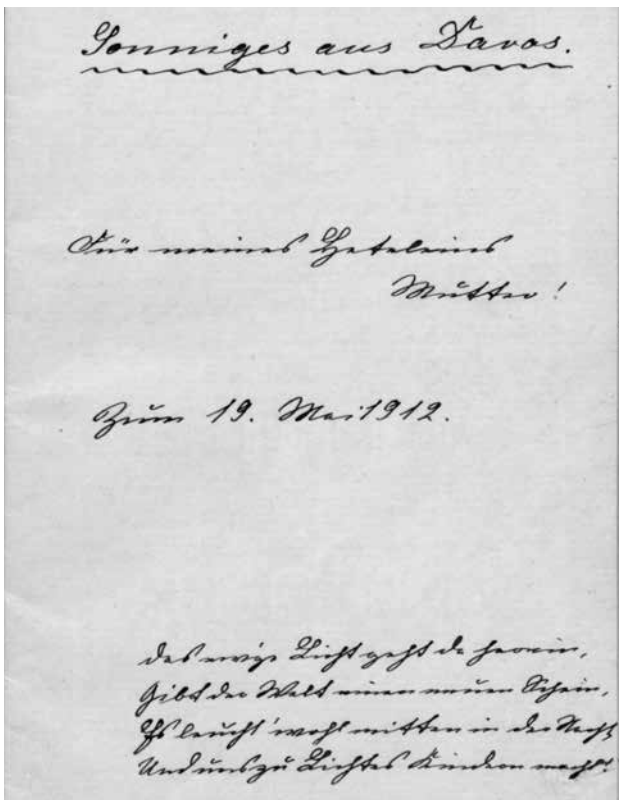 Sonniges aus Davos.
Für meines Hateleins
Mutter!
Zum 19. Mai 1912.
Das ewige Licht geht da herein,
Gibt der Welt einen neuen Schein,
Es leucht' wohl mitten in der Nacht
Und uns zu Lichtes Kindern macht!